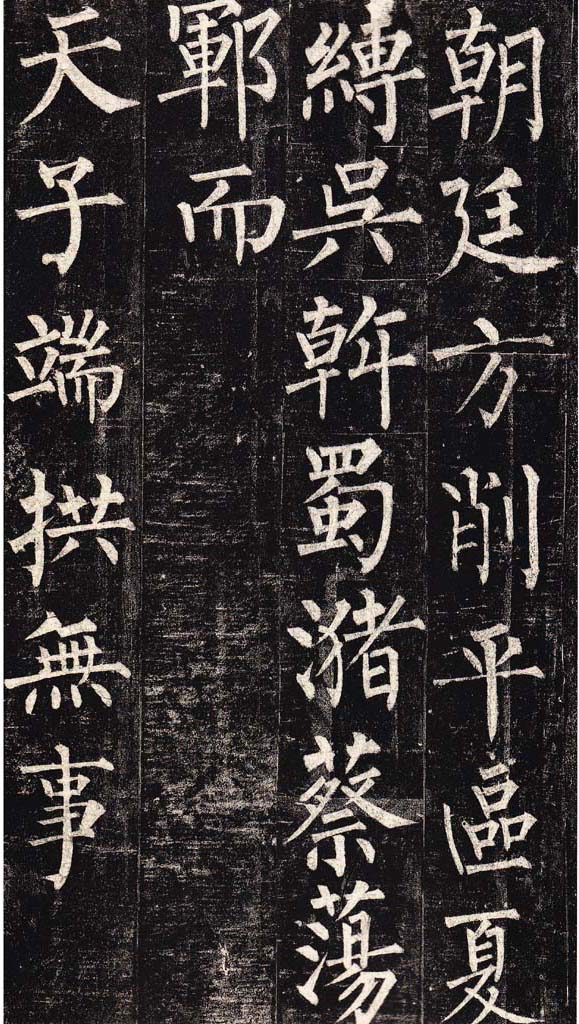 朝廷方削平區夏
縛吳斡蜀潴蔡蕩
鄆而
天子端拱無事